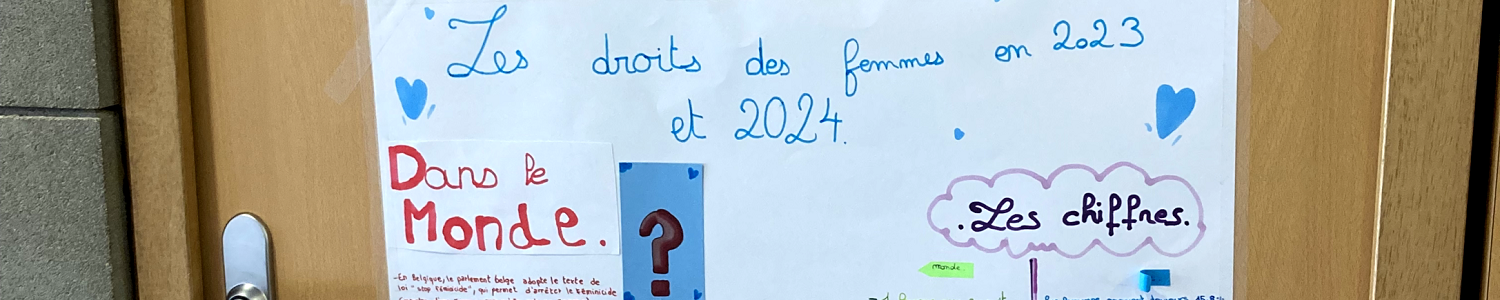 Les droits des femmes en 2023
et 2024.
Dans le
Monde.
. Les chiffres.
monde
-En Belgique, le parlement belge adopte le texte de
loi "stop féminicide", qui permet d'arrêter le féminicide